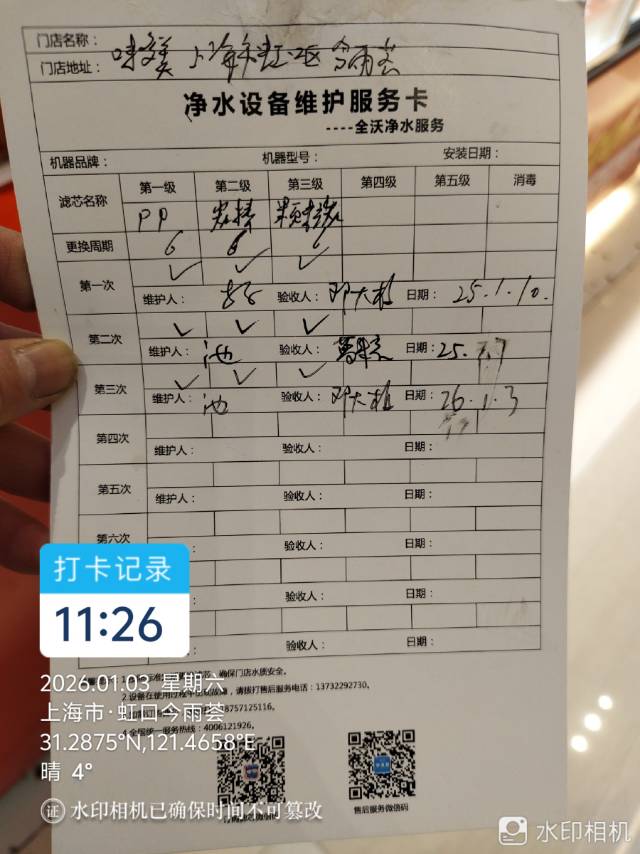 门店名称：
门店地址： 上海市虹口区今雨荟
净水设备维护服务卡
----全沃净水服务
机器品牌： 机器型号： 安装日期：
滤芯名称 第一级 第二级 第三级 第四级 第五级 消毒
PP 炭棒
更换周期 6 6 6
第一次 ✓ ✓ ✓
维护人： 验收人：邓大植 日期：25.1.10.
第二次 ✓ ✓ ✓
维护人：池 验收人： 日期：25.
第三次 ✓ ✓ ✓
维护人：池 验收人：邓大植 日期：26.1.3
第四次
维护人： 验收人： 日期：
第五次
维护人： 验收人： 日期：
第六次
验收人： 日期：
验收人： 日期：
验收人： 日期：
确保门店水质安全。
2.设备在使用 请拨打售后服务电话：13732292730。
8757125116。
服务热线：4006121926。
售后服务微信码
打卡记录
11:26
2026.01.03 星期六
上海市·虹口今雨荟
31.2875°N,121.4658°E
晴 4°
证 水印相机已确保时间不可篡改
水印相机